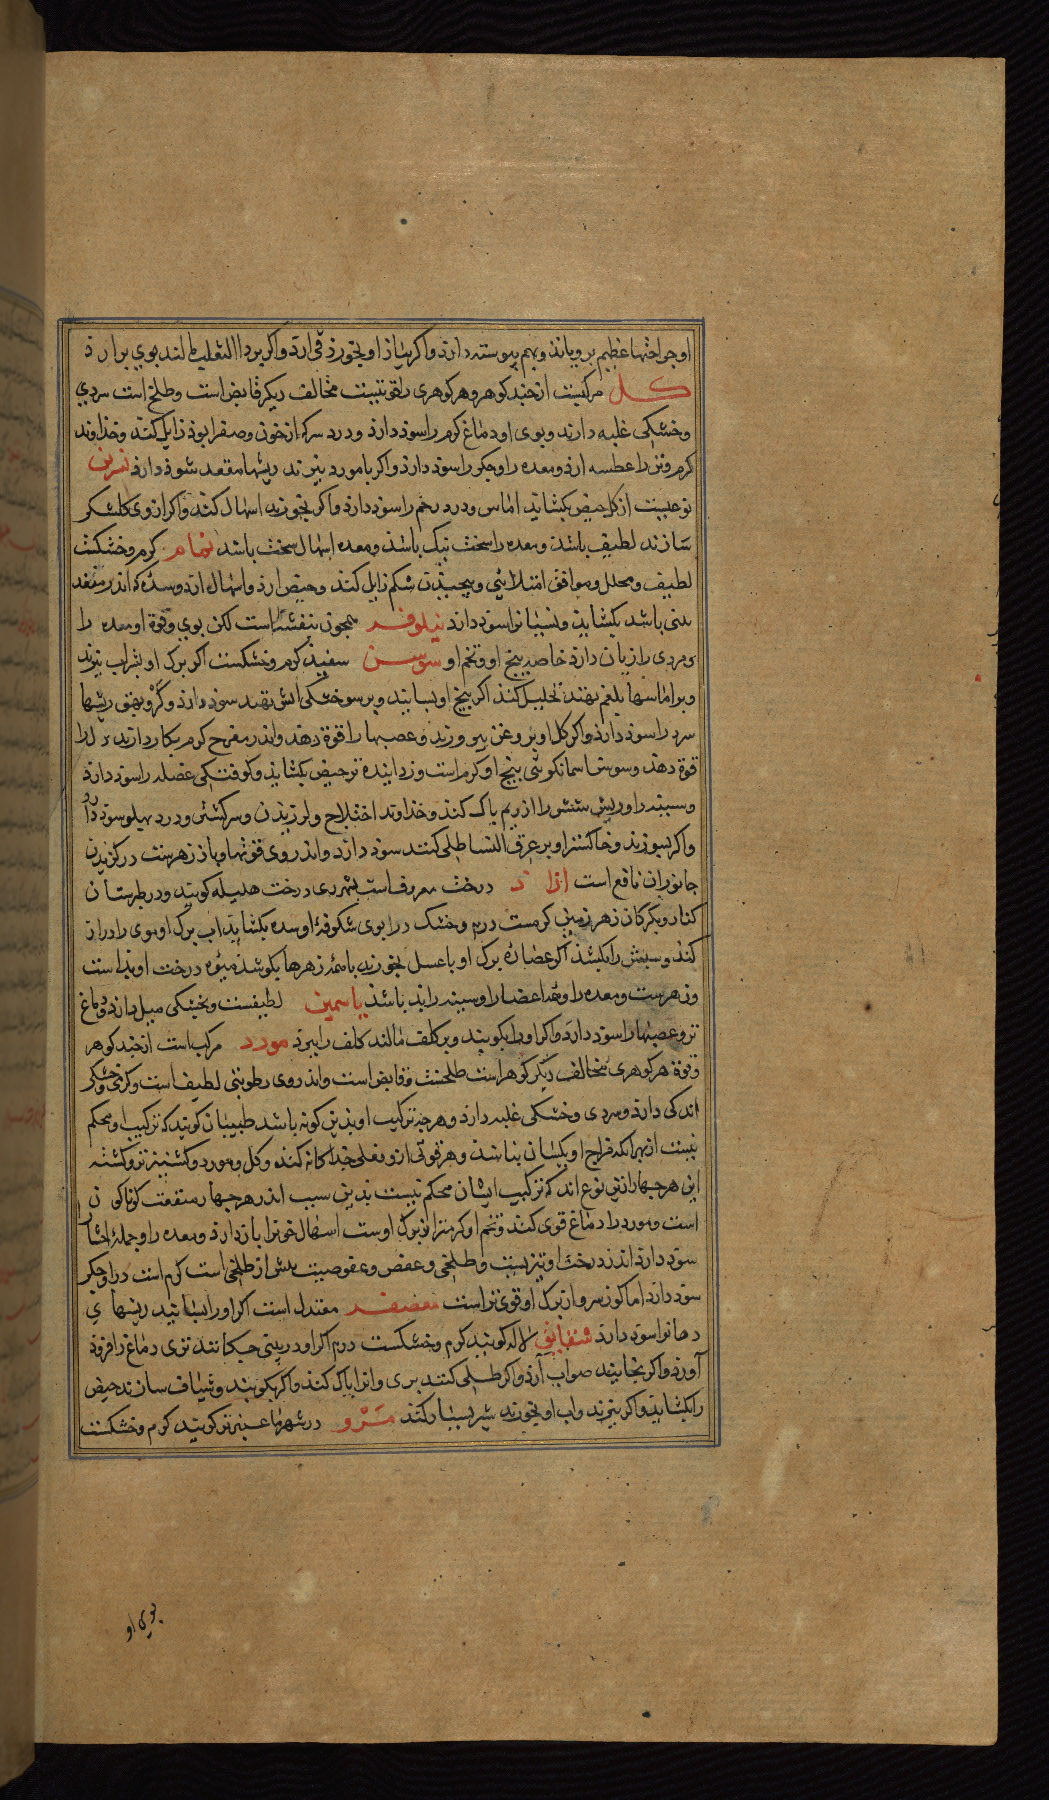 او جراحتها عظیم برویاند و بهم پیوسته دارد و اکر پیاز او بخورد قی ارد و اکر بر داالثعلب مالند بوی برارد
کل مرکبست از چند کوهر و هر کوهری را قوتیست مخالف دیکر قابض است و طلخ است سردی
و خشکی غلبه دارند و بوی او دماغ کرم را سود دارد و درد سر که از خون و صفرا بود زایل کند و خداوند
کرم و تر را عطسه ارد و معده را و جکر را سود دارد و اکر با مورد بپزند ریشها مقعد شود دارد نسرین
نوعیست از کل حیض بکشاید اماس و درد رحم را سود دارد و اکر بخورند اسهال کند و اکر از وی کلشکر
سازند لطیف باشد و معده را سخت نیک باشد و معده اسهال سخت باشد نمام کرم و خشکست
لطیف و محلل و موافق امتلائی و پیچیدن شکم زایل کند و حیض ارد و اسهال ارد و سده که اندر منفذ
بینی باشد بکشاید و نسیانرا سود دارد نیلوفر همجون بنفشه است لکن بوی و قوة او معده را
و مردی را زیان دارد خاصه بیخ او و تخم او سوسن سفید کرم و خشکست اکر برک او بشراب بپزند
و بر اماسها بلغم نهند تحلیل کند اکر بیخ او بسایند و بر سوختکی اتش نهند سود دارد و کر و بهق ریشها
سرد را سود دارد و اکر کل او بروغن بپرورند و عصبها را قوة دهد و اندر مفرح کرم بکار دارند دلرا
قوة دهد و سوسن اسمانکونی بیخ او کرم است و زداینده تر حیض بکشاید و کوفتکی عضله را سود دارد
و سینه را و ریش شش را از ریم پاک کند و خداوند اختلاج و لرزیدن و سر کشتن و درد پهلو سود دارد
و اکر بسوزند و خاکستر او بر عرق النسا طلی کنند سود دارد و اندر وی قوتها و باز زهرست در کزیدن
جانوران نافع است ازاد درخت معروفست بشهر ری درخت هلیله کویند و در طبرستان
کنار و بکرکان زهر زمین کرمست درم و خشک در بوی شکوفهٔ او سده بکشاید اب برک او موی را دراز
کند و سبش را بکشد اکر عصاره برک او با عسل بخورند با همه زهرها بکوشد میوه درخت او بذ است
و زهرست و معده را و همه اعضا را و سینه را بد باشد یاسمین لطیفست و بخشکی میل دارد و دماغ
تر و عصبها را سود دارد و اکر او را بکوبند و بر کلف مالند کلف را ببرد مورد مرکب است از چند کوهر
و قوة هر کوهری مخالف دیکر کوهر است طلخست و قابض است و اندر وی رطوبتی لطیف است و کرمی و خشکی
اندکی دارد و سردی و خشکی غلبه دارد و هر چه ترکیب او بدین کونه باشد طبیبان کویند که ترکیب او محکم
نیست از بهر انکه مزاج او یکسان نباشد و هر قوتی از و فعلی جداکانه کند و کل و مورد و کشنیز تر و کشنه
این هر چهار ازین نوع اند که ترکیب ایشان محکم نیست بدین سبب اندر هر چهار منفعت کوناکون
است و مورد را دماغ قوی کند و تخم او کرمتر از برک اوست اسهال خونرا باز دارد و معده را و جملهٔ احشا را
سود دارد اندر درخت او تیزیست و طلخی و عفص و عفوصیت بیش از طلخی است کرم است در او جکر
سود دارد اما کوز سرو از برک او قوی تر است معصفر معتدل است اکر او را بسایند ریشهای
دهانرا سود دارد شقایق لاله کویند کرم و خشکست درم اکر او در بینی چکانند تری دماغ را فرود
آورد و اکر بخایند صواب آرد و اکر طلی کنند بری و انرا پاک کند و اکر بکوبند و شیاف سازند حیض
را بکشاید و اکر بپزند و اب او بخورند شیر بسیار کند مرو در شهر ما عنبرتر کویند کرم و خشکست
بوی او